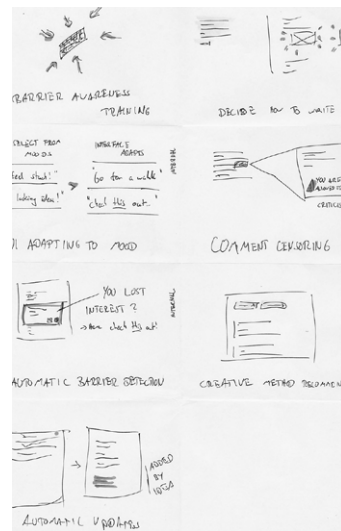 BARRIER AWARENESS
TRAINING
DECIDE HOW TO WRITE
SELECT FROM
MOODS
INTERFACE
ADAPTS
"Go for a walk"
"check this out"
INTERNAL
UI ADAPTING TO MOOD
YOU ARE
CRITICI
COMMENT CENSORING
YOU LOST
INTEREST?
→ Here check this out!
INTERNAL
AUTOMATIC BARRIER DETECTION
CREATIVE METHOD RECOMMEN
ADDED
BY
AUTOMATIC